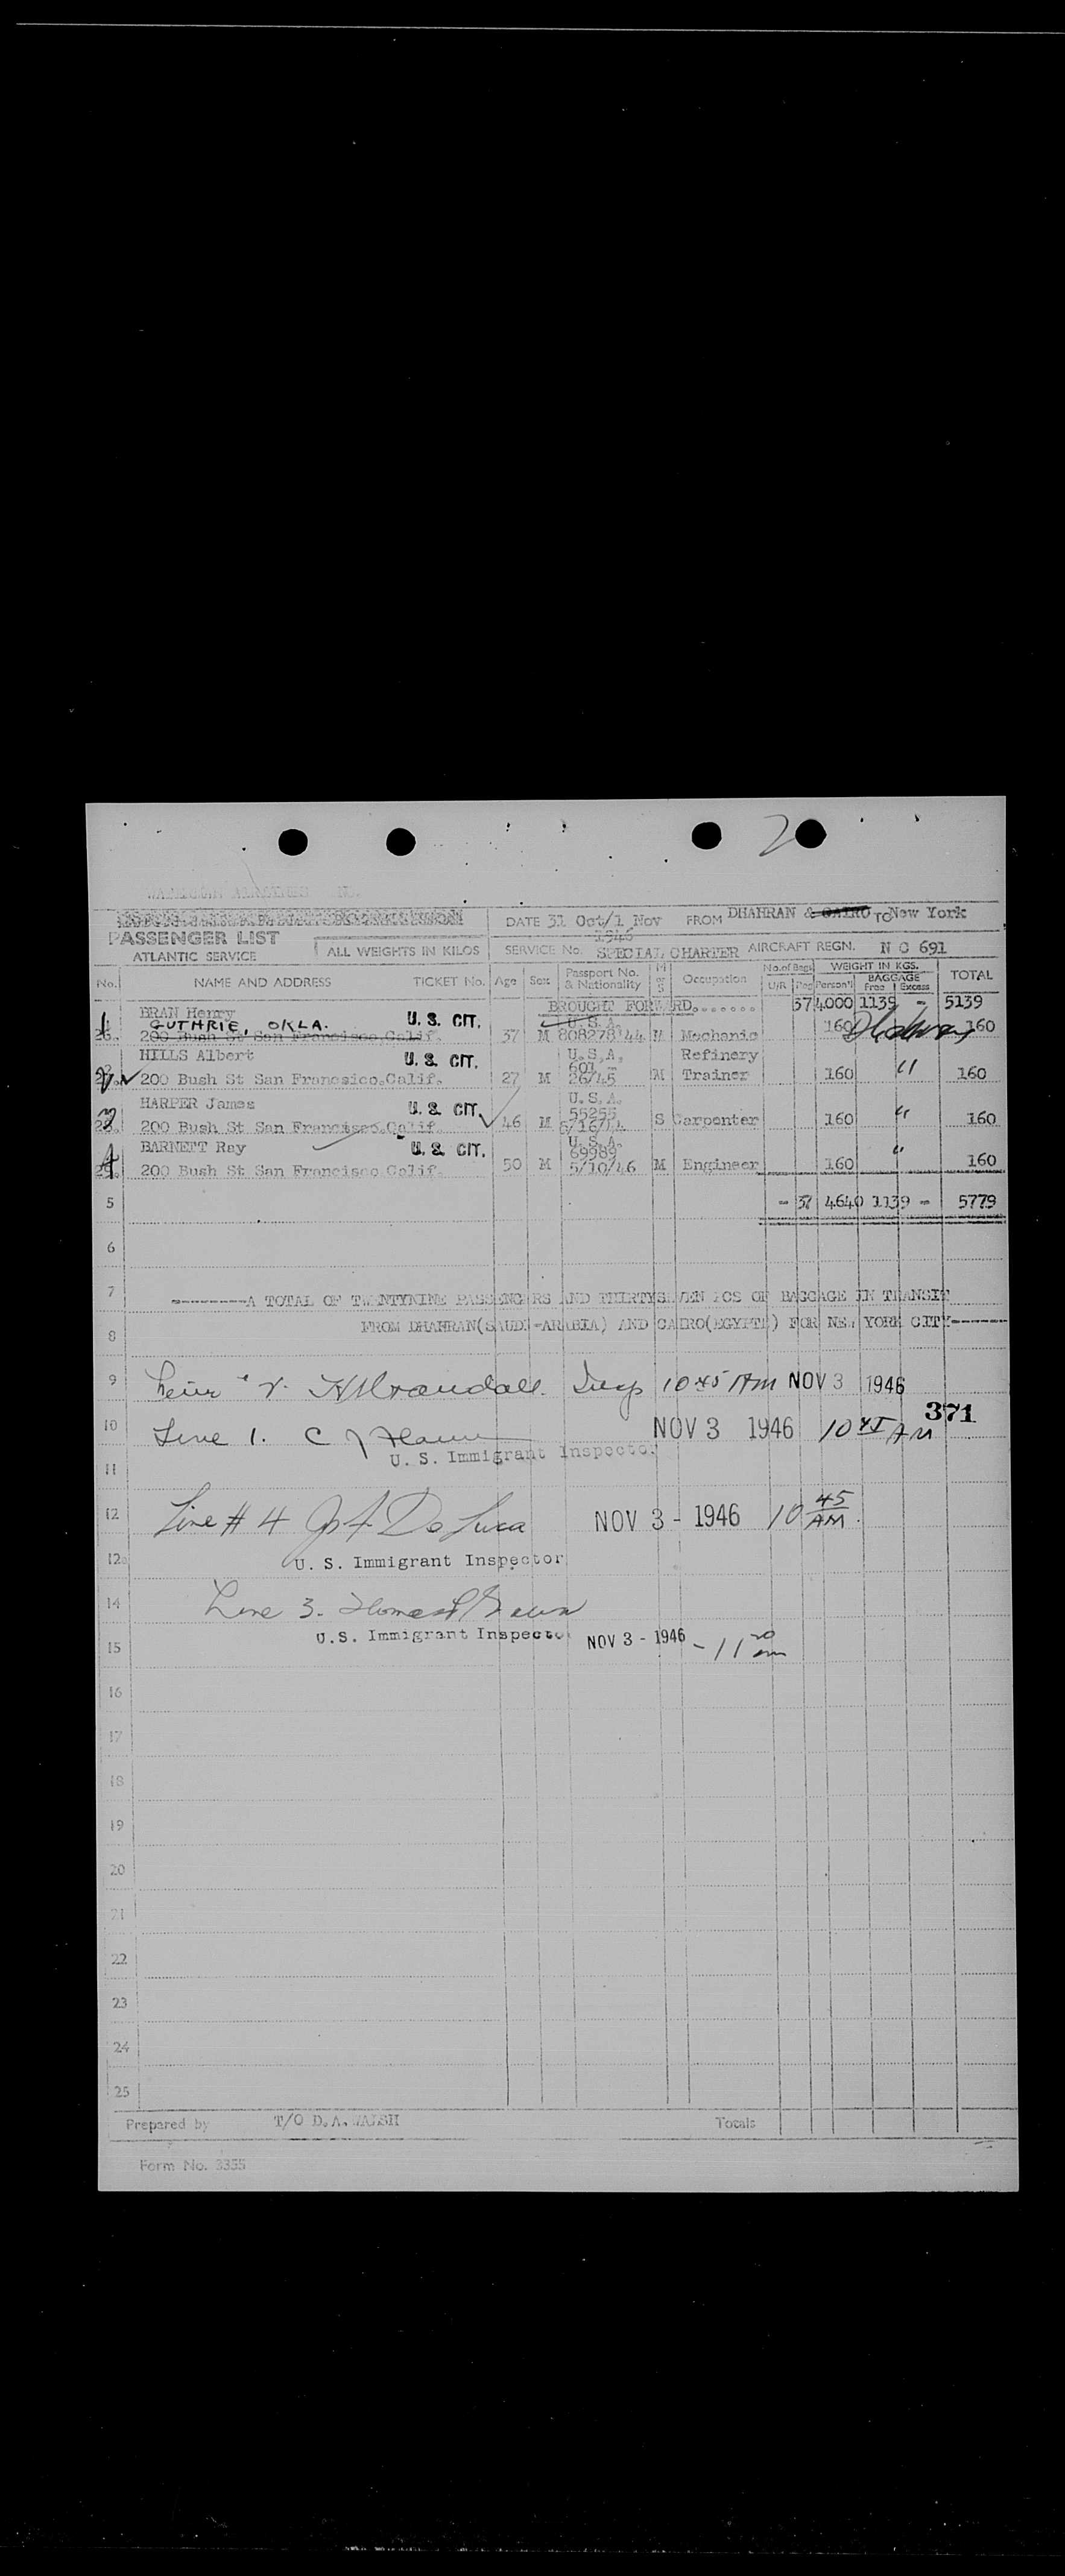 2
PASSENGER LIST
ATLANTIC SERVICE
ALL WEIGHTS IN KILOS
DATE 31 Oct/1 Nov 1946 FROM DHAHRAN & CAIRO TO New York
SERVICE No. SPECIAL CHARTER AIRCRAFT REGN. N C 691
No. NAME AND ADDRESS TICKET No. Age Sex Passport No. & Nationality M or S Occupation No. of Bags U/R Pcs WEIGHT IN KGS. Person'l BAGGAGE Free Excess TOTAL
BROUGHT FORWARD....... 37 4000 1139 - 5139
1 BRAN Henry U. S. CIT. U.S.A.
GUTHRIE, OKLA.
26. 200 Bush St San Francisco.Calif. 37 M 808278 44 M Mechanic 160 Dhahran 160
2 HILLS Albert U. S. CIT. U.S.A. Refinery
601 -
200 Bush St San Francsico.Calif. 27 M 26/45 M Trainer 160 " 160
3 HARPER James U. S. CIT. U.S.A.
55255
200 Bush St San Francisco.Calif. 46 M 6/16/44 S Carpenter 160 " 160
4 BARNETT Ray U. S. CIT. U.S.A.
69989
200 Bush St San Francisco.Calif. 50 M 5/10/46 M Engineer 160 " 160
5 - 37 4640 1139 - 5779
6
7 --------A TOTAL OF TWENTYNINE PASSENGERS AND THIRTYSEVEN PCS OF BAGGAGE IN TRANSIT
8 FROM DHAHRAN(SAUDI-ARABIA) AND CAIRO(EGYPTE) FOR NEW YORK CITY------
9 Crandall Insp 10 45 AM NOV 3 1946
371
10 Line 1. C J NOV 3 1946 10 45 AM
U. S. Immigrant Inspector
11
12 Line # 4 De Luca NOV 3 - 1946 10 45 AM.
12a U. S. Immigrant Inspector
14 Line 3.
15 U.S. Immigrant Inspector NOV 3 - 1946 - 11 20 am
16
17
18
19
20
21
22
23
24
25
Prepared by T/O D.A.WALSH Totals
Form No. 3355